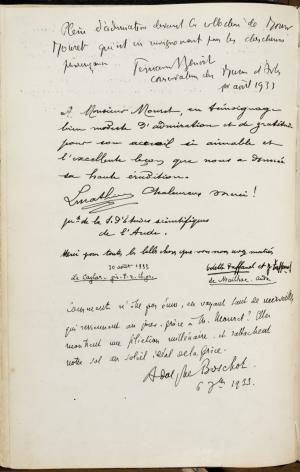 Plein d'admiration devant la collection de Monsieur
Mouret qu'on
Fernand Benoit
conservateur des Musées d'Arles
1er avril 1933
A Monsieur Mouret, en témoignage
bien modeste d'admiration et de gratitude
pour son accueil si aimable et
l'excellente leçon que nous a donnée
sa haute érudition.
Chaleureux merci!
de la S. d'études scientifiques
de l'Aude.
Merci pour toutes les belles choses que vous nous avez montrées
20 août 1933
Le Caylar
Odette Taffanel et J. Taffanel
de Mailhac. Aude
Comment n'être pas ému, en voyant tant de merveilles
qui reviennent au jour, grâce à M. Mouret? Elles
montrent une filiation millénaire, et rattachent
notre sol au soleil idéal de la Grèce.
Adolphe Boschot
6 7bre 1933.